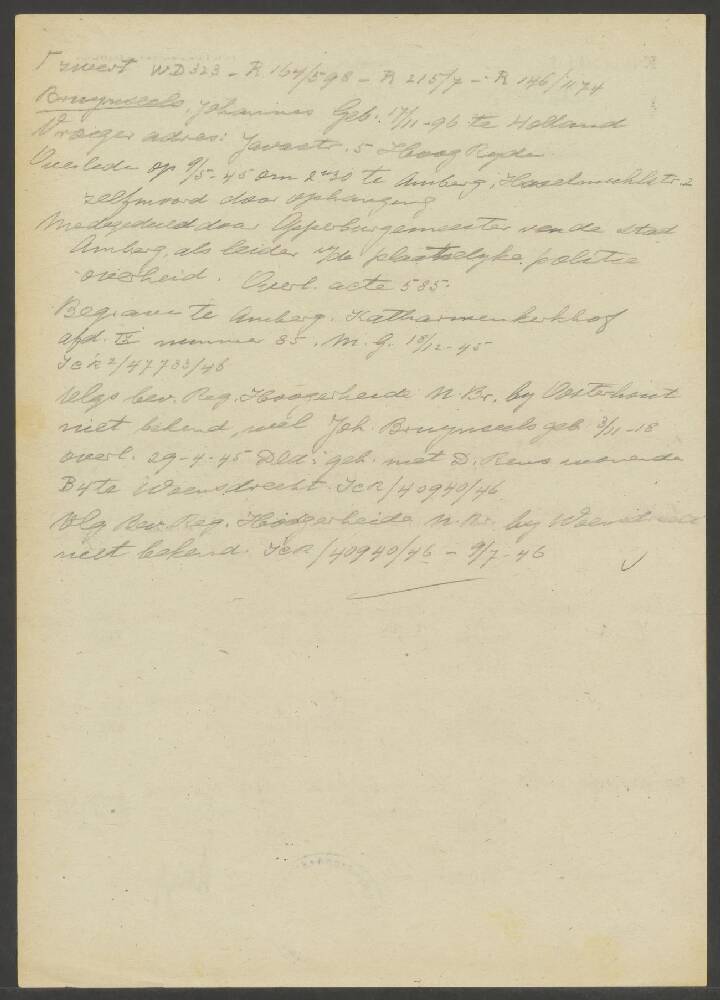 WD 323 - R 164/598 - R 215/7 - R 146/1174
Bruynseels, Johannes Geb. 17/11-96 te Holland
Vroeger adres: Javastr. 5 Hoog Ryde
Overleden op 9/5-45 om 2 te Amberg,
zelfmoord door ophanging
Medegedeeld door Opperburgemeester van de stad
Amberg, als leider v/de plaatselyke politie
overheid. Overl. acte 585.
Begraven te Amberg. Katharinenkerkhof
afd. IX nummer 85. M.G. 18/12-45
Ick 2/47733/46
Volgs bev. Reg. Hoogerheide N. Br. by Oosterhout
niet bekend, wel Joh. Bruynseels geb. 3/11-18
overl. 29-4-45 geh. met D. wonende
B4 te Woensdrecht. Ick/40940/46
Volg Bev. Reg. Hoogerheide N. Br. by
niet bekend. Ick/40940/46 - 9/7-46